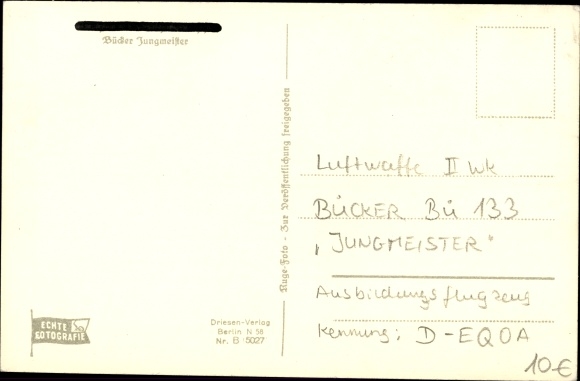 Bücker Jungmeister
Kluge-Foto - Zur Veröffentlichung freigegeben
Luftwaffe II Wk
BÜCKER BÜ 133
„JUNGMEISTER“
Ausbildungsflugzeug
Kennung: D-EQOA
ECHTE
FOTOGRAFIE
Driesen-Verlag
Berlin N 58
Nr. B 5027
10€